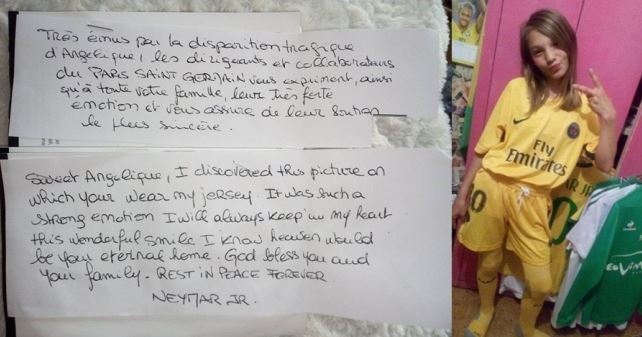 TRÈS émus par la disparition tragique
d'Angélique, les dirigeants et collaborateurs
du PARIS SAINT GERMAIN vous expriment, ainsi
qu'à toute votre famille, leur très forte
émotion et vous assure de leur soutien
le plus sincère.
Sweat Angelique, I discovered this picture on
which your wear my jersey. It was such a
strong emotion I will always keep in my heart
this wonderful smile I know heaven would
be your eternal home. God bless you and
your family. REST IN PEACE FOREVER
NEYMAR JR.
Fly
Emirates
AR JR
10
eoVim